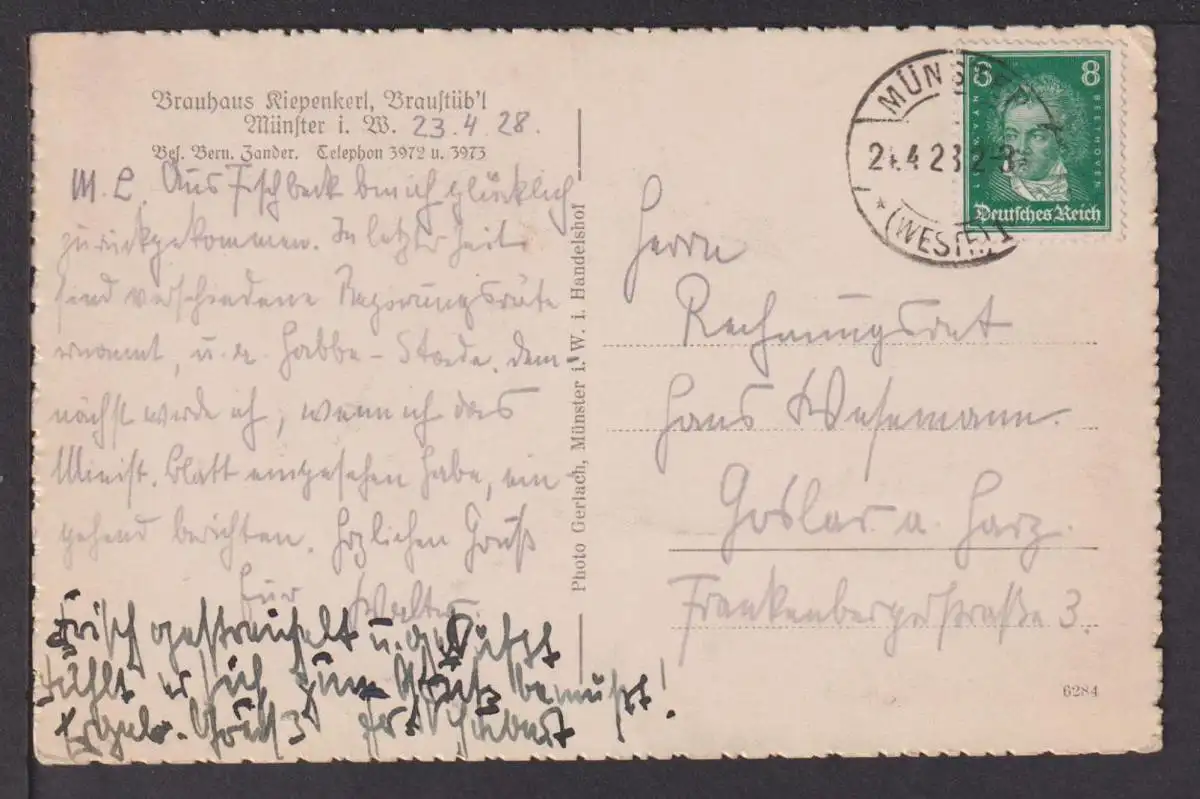 Brauhaus Kiepenkerl, Braustüb'l
Münster i. W. 23.4.28.
Bes. Bern. Zander. Telephon 3972 u. 3973
M. L. Aus Fischbeck bin ich glücklich
zurückgekommen. In letzter Zeit
sind verschiedene Regierungsräte
ernannt, u. a. Habbe-Stade. Dem-
nächst werde ich, wenn ich das
Minist. Blatt eingesehen habe, ein
gehend berichten. Herzlichen Gruß
Für Walter.
Frisch gestreichelt u. geputzt
fühlt er sich zum bemüßt!
Ergeb. Gruß
Photo Gerlach, Münster i. W. i. Handelshof
MÜNSTER
24.4.28.2-3
* (WESTF.) 1
8 8
L. VAN BEETHOVEN
Deutsches Reich
Herrn
Rechnungsrat
Hans Wesemann.
Goslar a. Harz.
Frankenbergerstraße 3.
6284